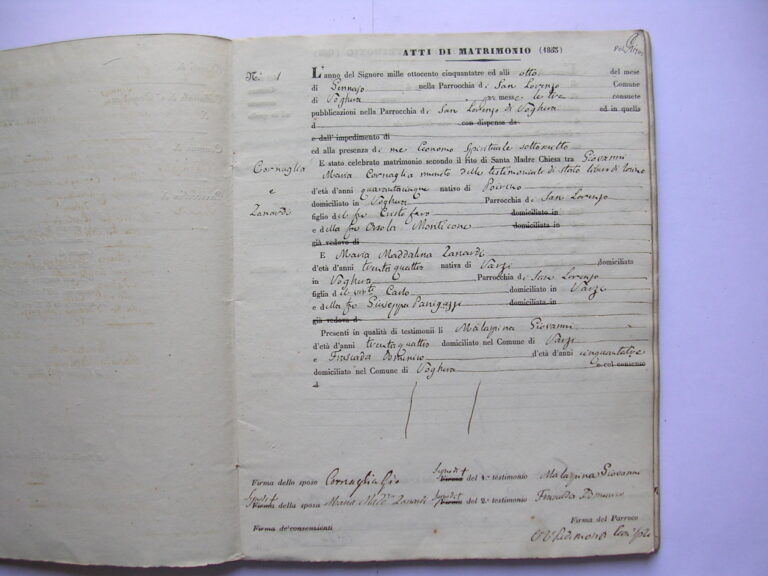 ATTI DI MATRIMONIO (1853)
N.º 1
L'anno del Signore mille ottocento cinquantatre ed alli otto del mese
di Gennajo nella Parrocchia di San Lorenzo Comune
di Voghera premesse le tre consuete
pubblicazioni nella Parrocchia di San Lorenzo di Voghera ed in quella
d con dispense da
e dall'impedimento di
ed alla presenza di me Economo Spirituale sottoscritto
Cornaglia
e
Zanardi
È stato celebrato matrimonio secondo il rito di Santa Madre Chiesa tra Giovanni
Maria Cornaglia munito delle testimoniale di stato libero di
d'età d'anni quarantacinque nativo di Poirino
domiciliato in Voghera Parrocchia di San Lorenzo
figlio del fu Cristoforo domiciliato in
e della fu Orsola Monticone domiciliata in
già vedovo di
E Maria Maddalena Zanardi
d'età d'anni trentaquattro nativa di Varzi domiciliata
in Voghera Parrocchia di San Lorenzo
figlia del Carlo domiciliato in Varzi
e della fu Giuseppa Panigazzi domiciliata in
già vedova di
Presenti in qualità di testimonii li Malaspina Giovanni
d'età d'anni trentaquattro domiciliato nel Comune di Varzi
e Frascada Domenico d'età d'anni cinquantatre
domiciliato nel Comune di Voghera e col consenso
d
Firma dello sposo Cornaglia Gio Firma del 1.º testimonio Malaspina Giovanni
Firma della sposa Maria Madd. Zanardi Firma del 2.º testimonio Frascada Domenico
Firma de'consenzienti
Firma del Parroco